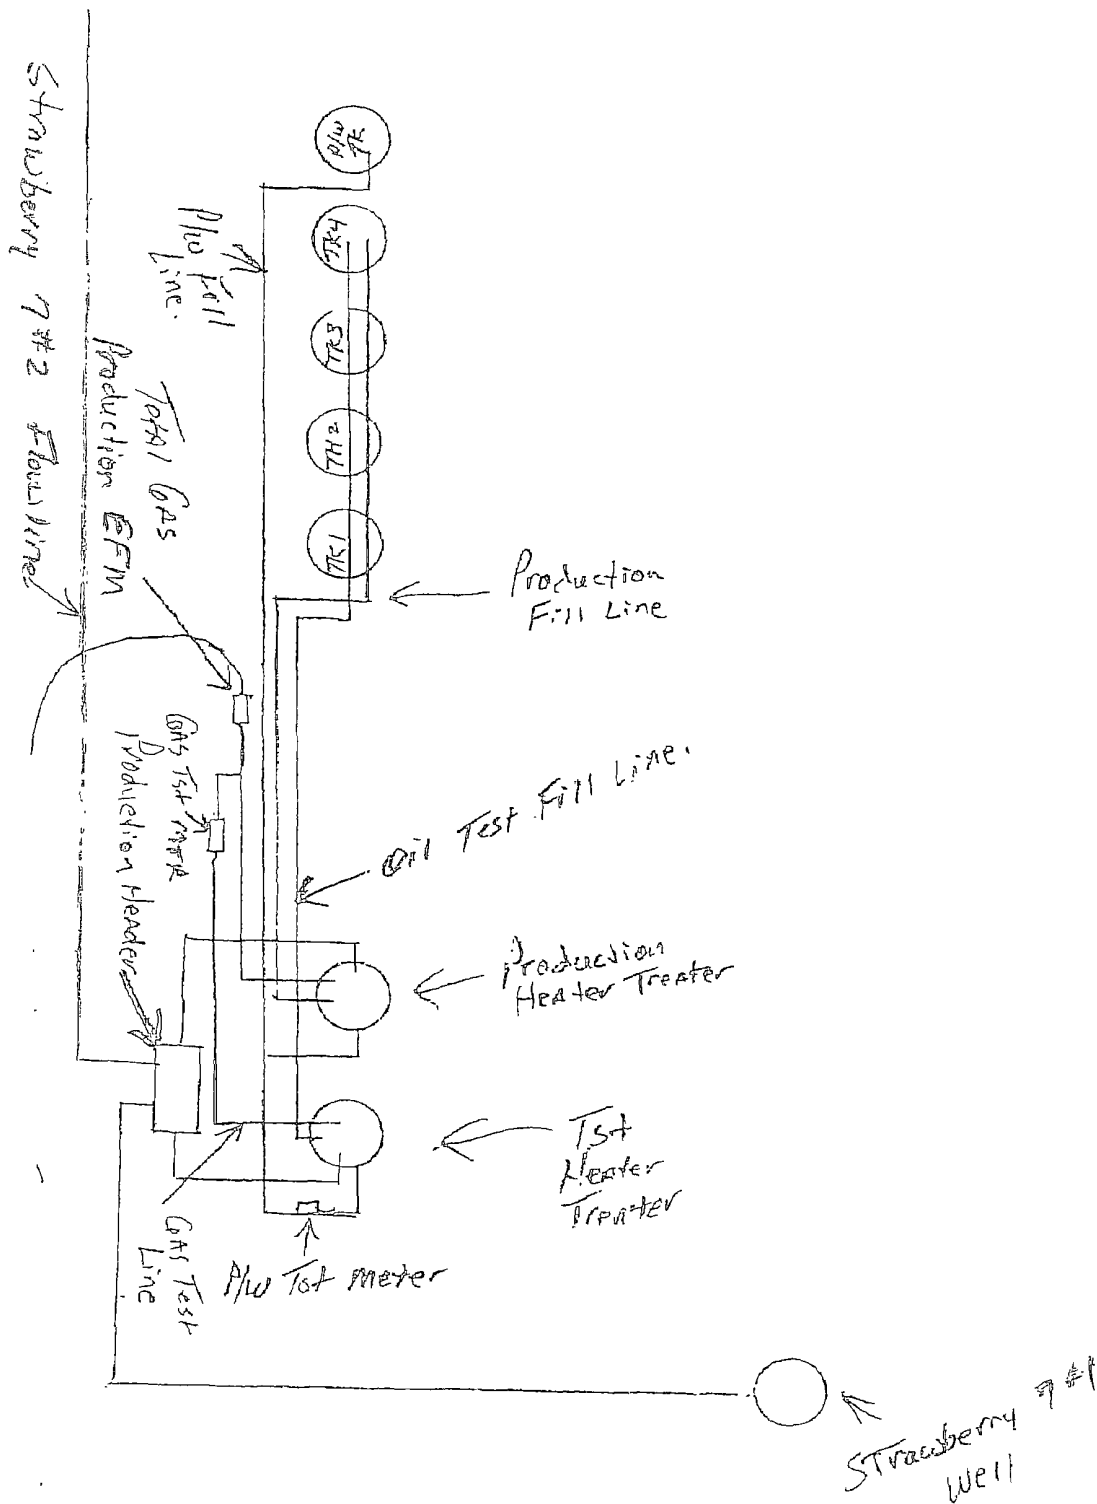 P/W
TK
TK4
TK3
TH2
TK1
P/W Fill
Line.
Strawberry 7 #2 Flowline
Total GAS
Production EFM
Production
Fill Line
GAS Tst MTR
Production Header
Oil Test Fill Line.
Production
Heater Treater
Tst
Heater
Treater
GAS Test
Line
P/W Tst meter
STrawberry 7 #1
Well